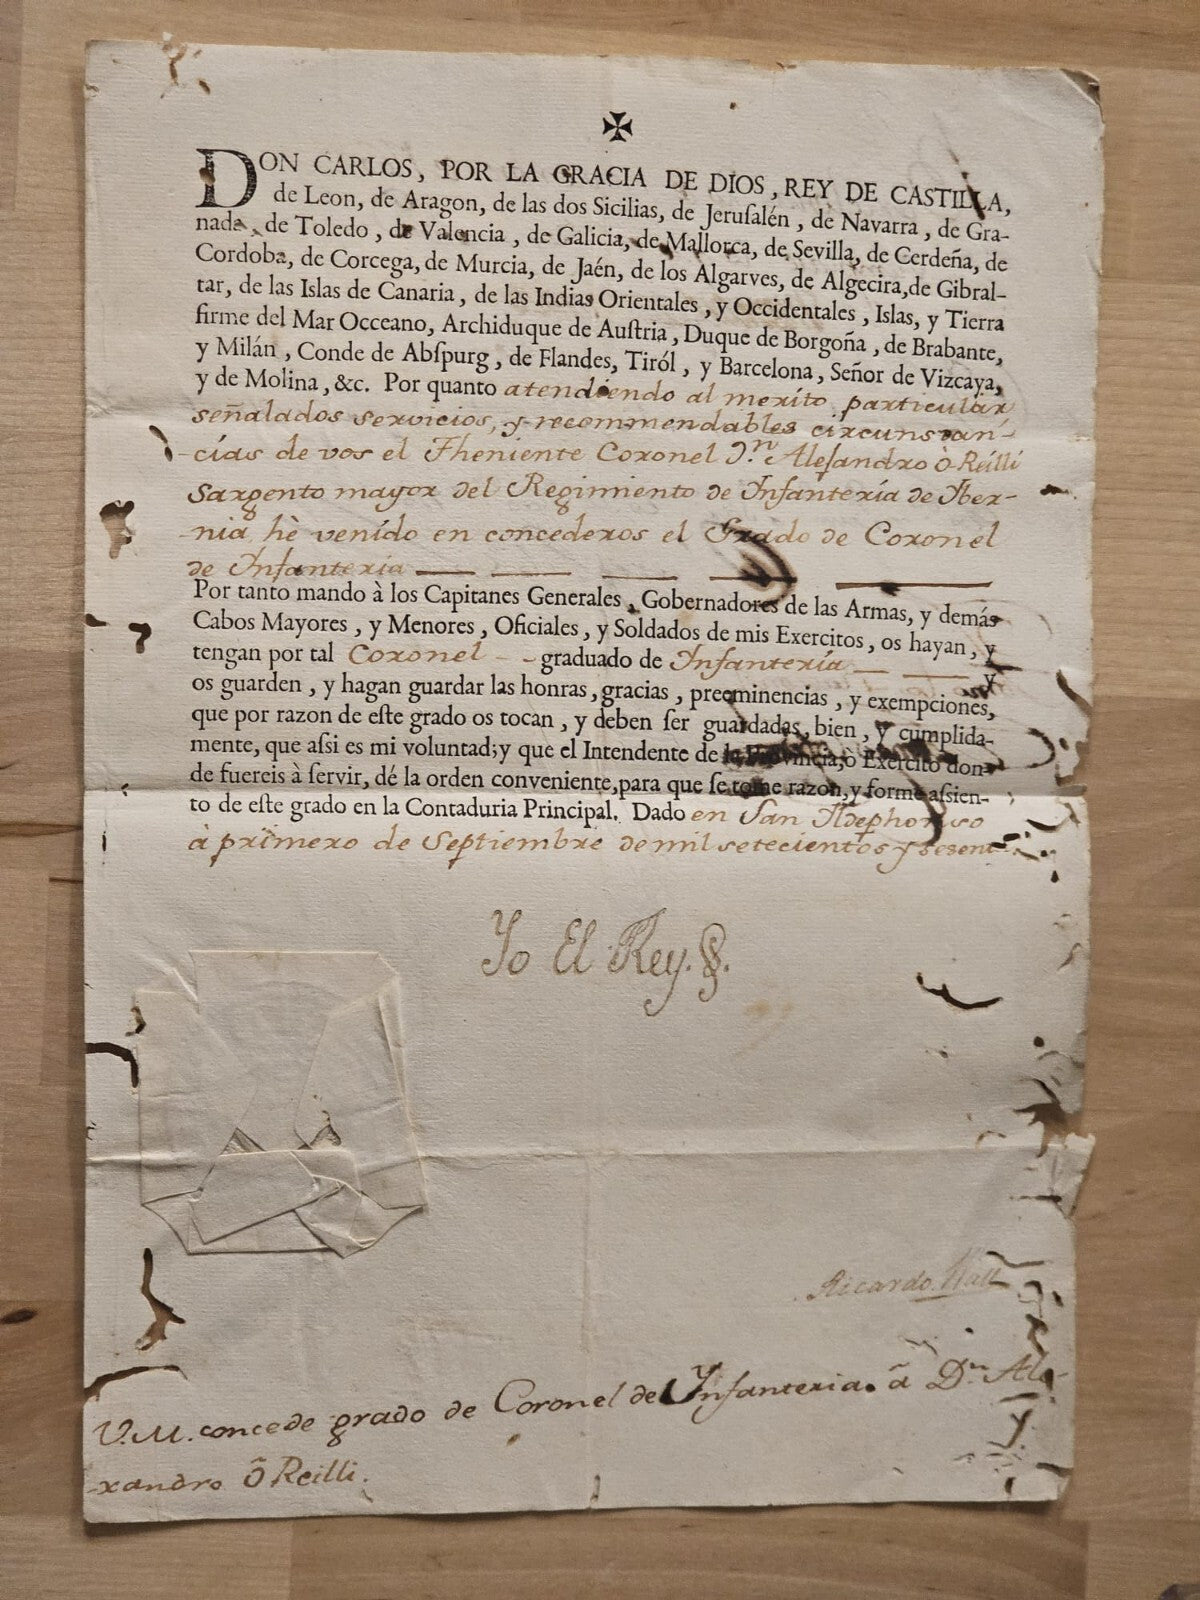 ✠
DON CARLOS, POR LA GRACIA DE DIOS, REY DE CASTILLA,
de Leon, de Aragon, de las dos Sicilias, de Jeruſalén, de Navarra, de Gra-
nada, de Toledo, de Valencia, de Galicia, de Mallorca, de Sevilla, de Cerdeña, de
Cordoba, de Corcega, de Murcia, de Jaén, de los Algarves, de Algecira, de Gibral-
tar, de las Islas de Canaria, de las Indias Orientales, y Occidentales, Islas, y Tierra
firme del Mar Occeano, Archiduque de Auſtria, Duque de Borgoña, de Brabante,
y Milán, Conde de Abſpurg, de Flandes, Tiról, y Barcelona, Señor de Vizcaya,
y de Molina, &c. Por quanto atendiendo al merito particular
señalados servicios, y recommendables circunstan-
cias de vos el Theniente Coronel D.n Alejandro ò Reilli
Sargento mayor del Regimiento de Infantería de Yber-
nia, hè venido en concederos el Grado de Coronel
de Infanteria
Por tanto mando à los Capitanes Generales, Gobernadores de las Armas, y demás
Cabos Mayores, y Menores, Oficiales, y Soldados de mis Exercitos, os hayan, y
tengan por tal Coronel - - graduado de Infantería y
os guarden, y hagan guardar las honras, gracias, preeminencias, y exempciones,
que por razon de eſte grado os tocan, y deben ſer guardadas, bien, y cumplida-
mente, que aſsi es mi voluntad; y que el Intendente de la Provincia, ò Exercito don-
de fuereis à ſervir, dé la orden conveniente, para que ſe tome razon, y forme aſsien-
to de eſte grado en la Contaduria Principal. Dado en San Ildephonso
à primero de Septiembre de mil setecientos y sesent
Yo El Rey.
Ricardo Wall
V.M. concede grado de Coronel de Ynfanteria à Dn Ale-
xandro Ò Reilli.